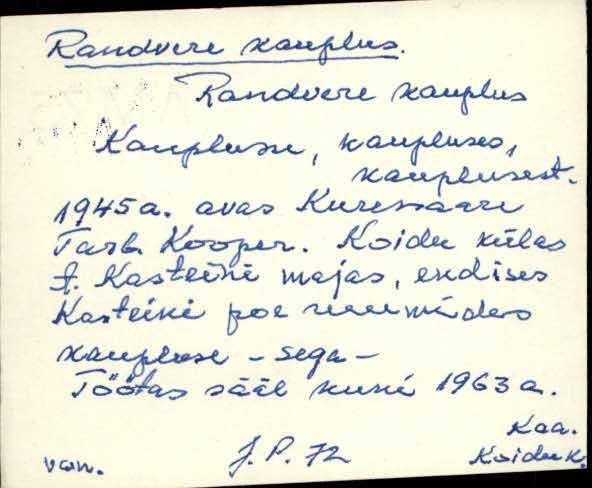 Randvere kauplus.
Randvere kauplus
Kauplusse, kaupluses,
kauplusest.
1945 a. avas Kuressaare
Tarb. Kooper. Koidu külas
A. Kasteini majas, endises
Kasteini poe ruumides
kaupluse - sega -
Töötas sääl kuni 1963 a.
Kaa.
van. J. P. 72 Koidu k.